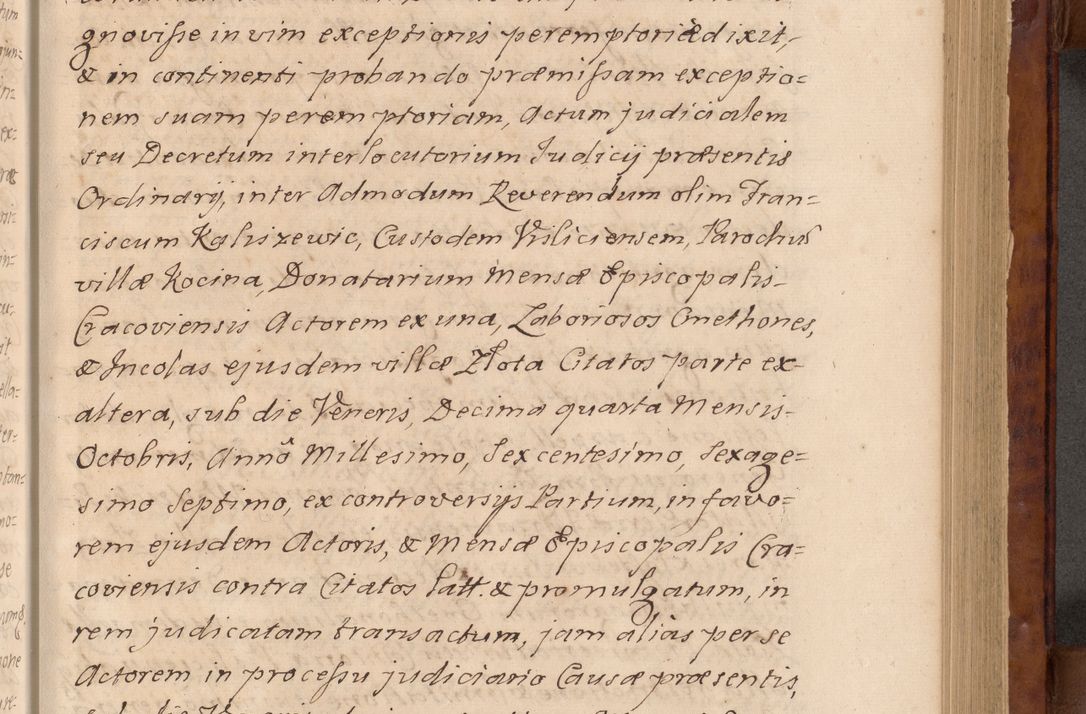 gnovisse in vim exceptionis peremptoriæ dixit,
& in continenti probando præmissam exceptio=
nem suam peremptoriam, Actum judicialem
seu Decretum interlocutorium Judicij præsentis
Ordinarij, inter Admodum Reverendum olim Fran=
ciscum Kaliszewic, Custodem Visliciensem, Parochum
villæ Kocina, Donatarium Mensæ Episcopalis
Cracoviensis Actorem ex una, Laboriosos Cmethones,
& Incolas ejusdem villæ Zlota Citatos parte ex
altera, sub die Veneris, Decima quarta Mensis
Octobris, Anno Millesimo, Sexcentesimo, Sexage=
simo Septimo, ex controversijs Partium, in favo=
rem ejusdem Actoris, & Mensæ Episcopalis Cra=
coviensis contra Citatos latt. & promulgatum, in
rem judicatam transactum, jam alias per se
Actorem in processu judiciario Causæ præsentis,